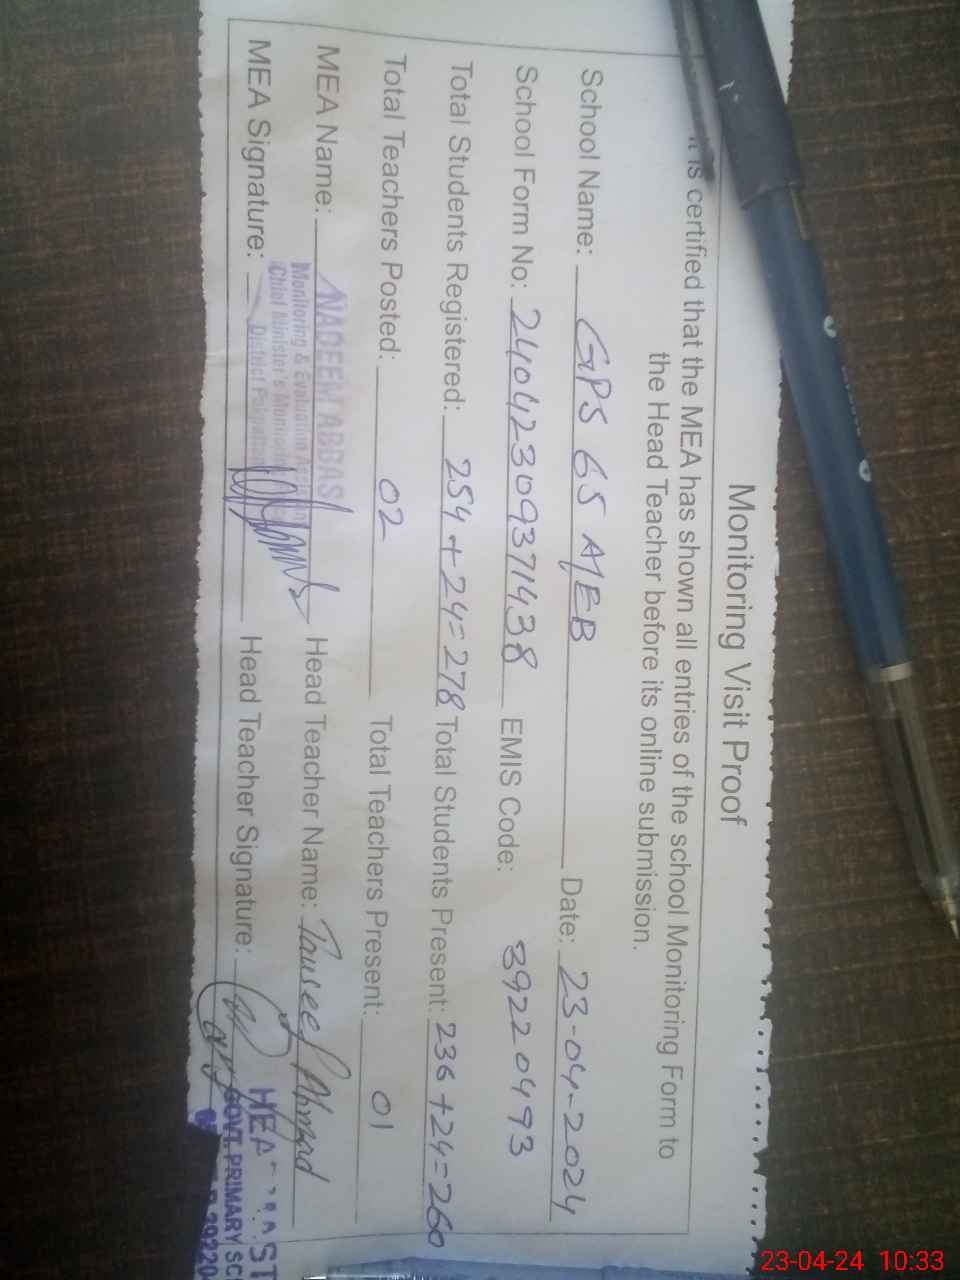 Monitoring Visit Proof
It is certified that the MEA has shown all entries of the school Monitoring Form to
the Head Teacher before its online submission.
School Name: GPS 65 A/EB Date: 23-04-2024
School Form No: 24042309371438 EMIS Code: 39220493
Total Students Registered: 254+24=278 Total Students Present: 236+24=260
Total Teachers Posted: 02 Total Teachers Present: 01
MEA Name: NADEEM ABBAS Head Teacher Name: Tauseef Ahmad
Monitoring & Evaluation
Chief Minister's Monitoring
District Pakpattan
MEA Signature: Head Teacher Signature:
GOVT. PRIMARY SC
39220
23-04-24 10:33